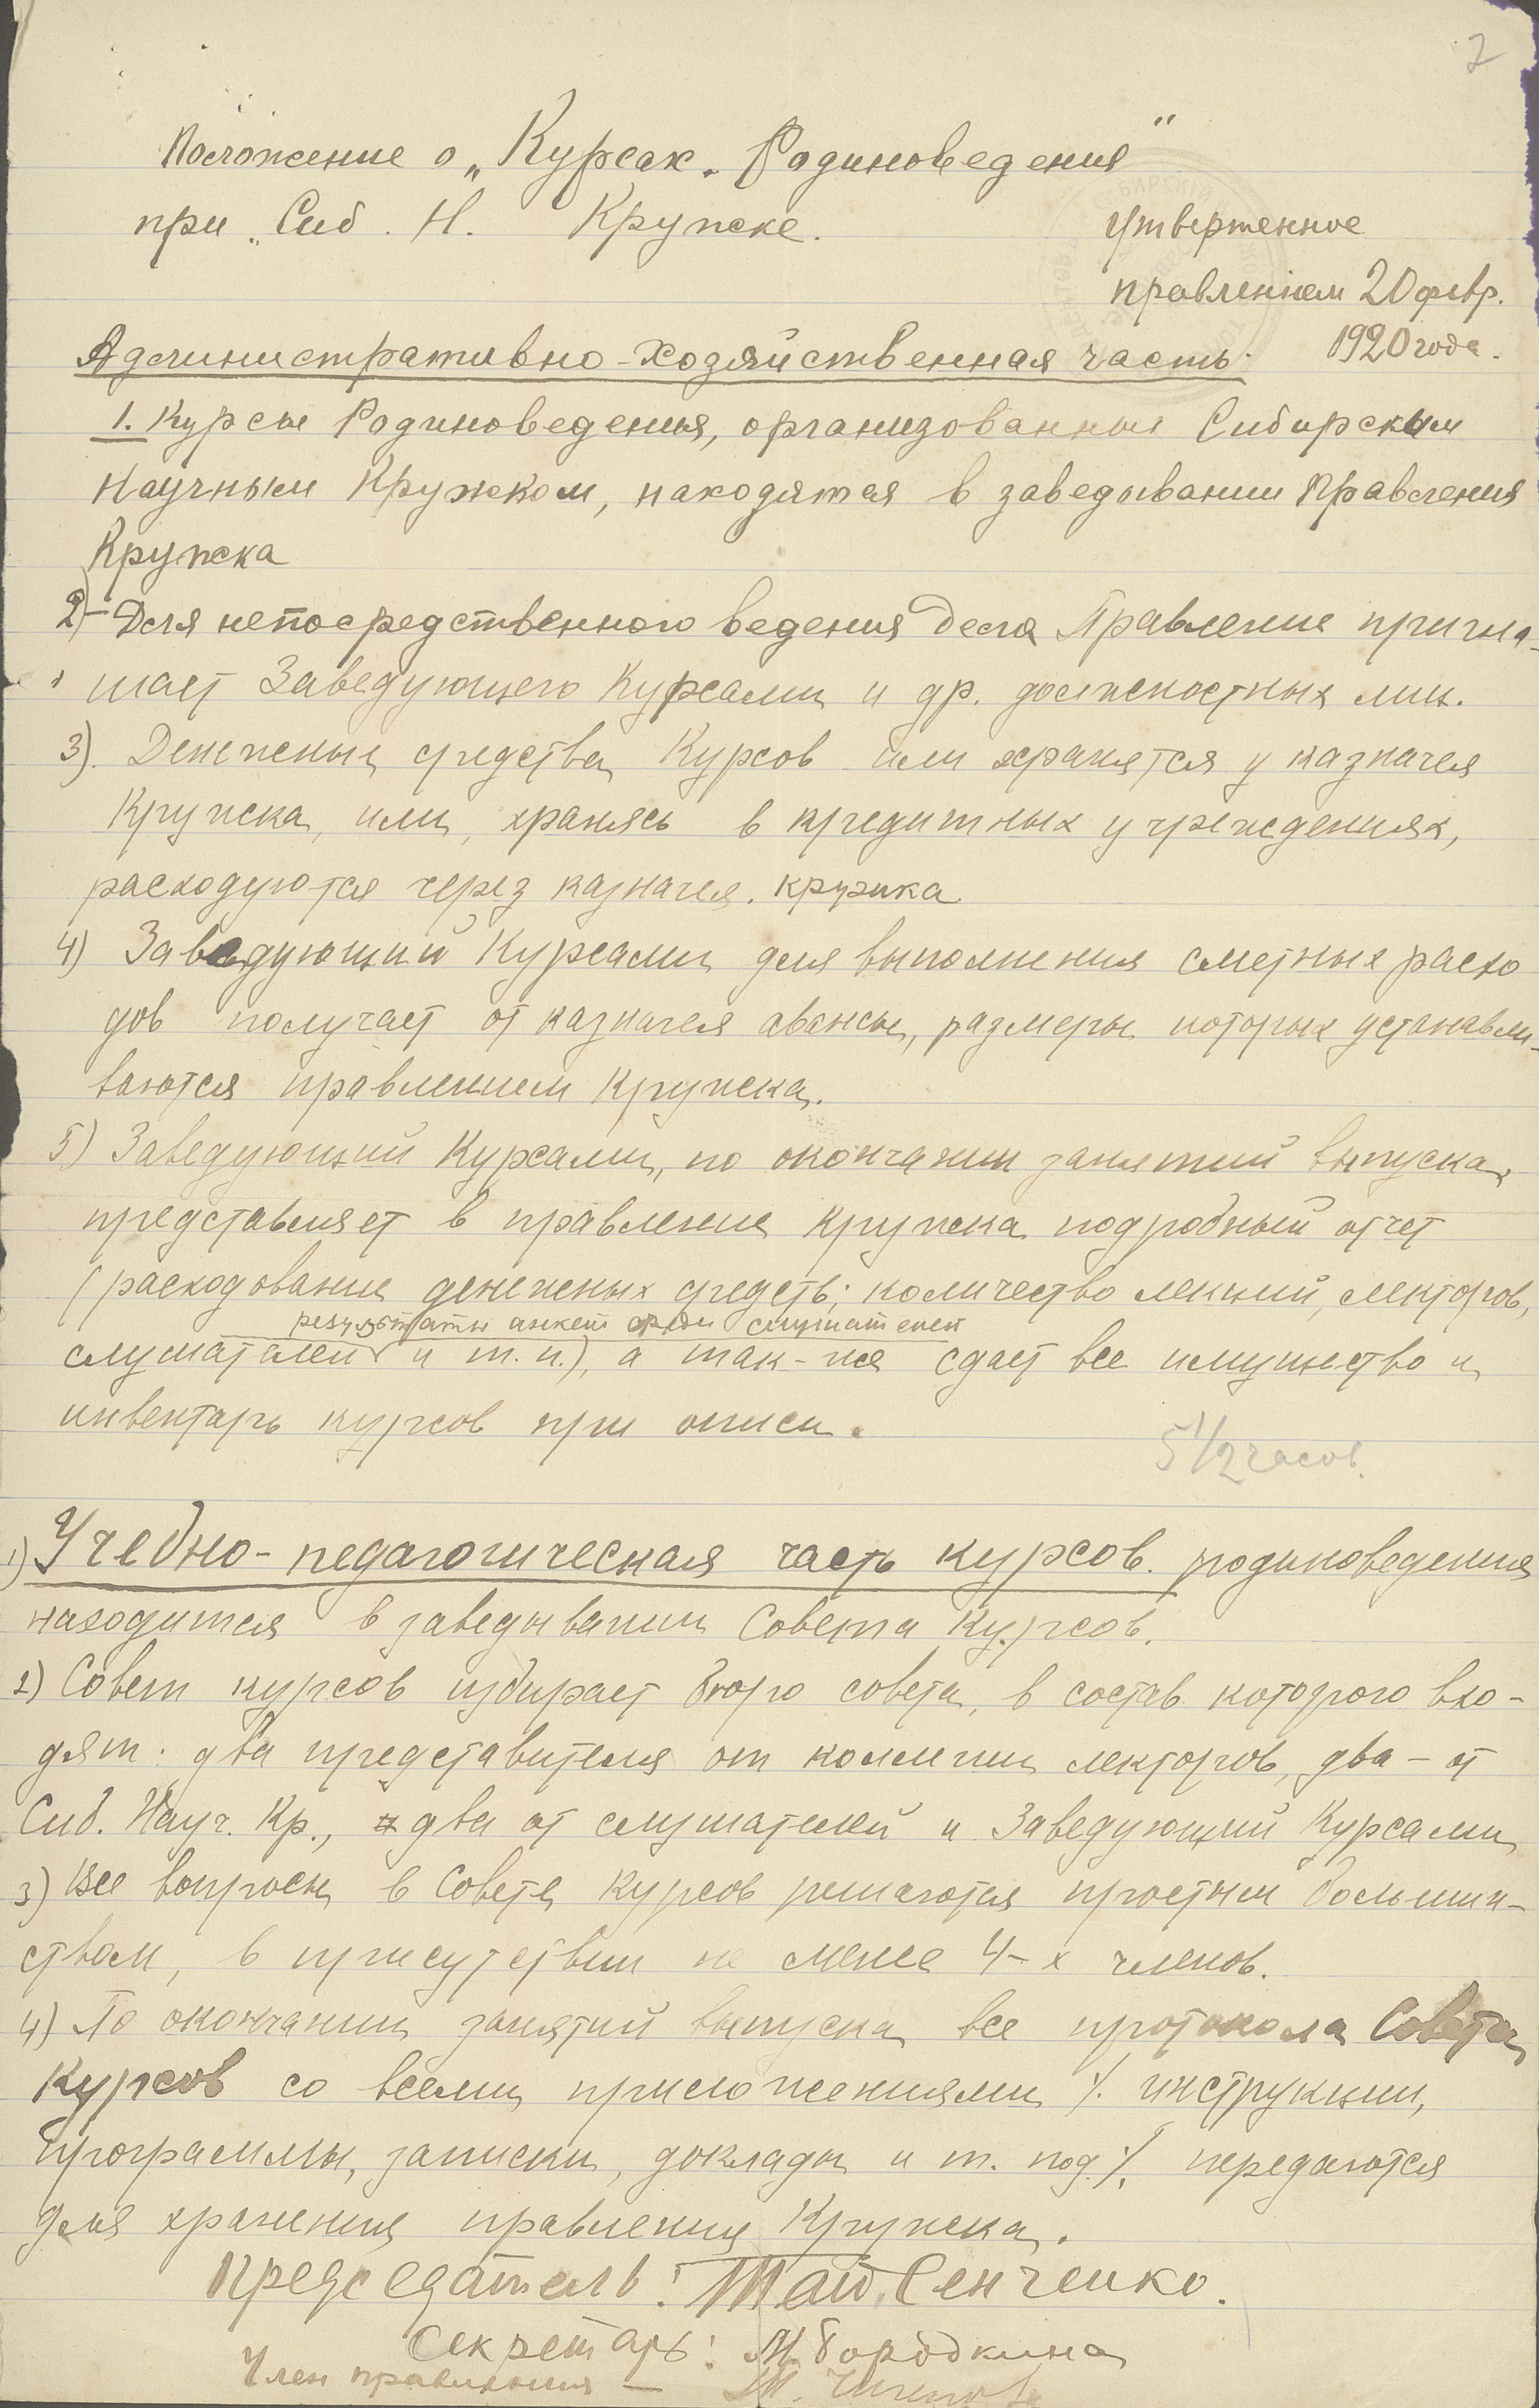 2
Положение о „Курсах Родиноведения"
при „Сиб. Н. Кружке.
Утверженное
правлением 20 февр.
1920 года.
Административно-Хозяйственная часть.
1. Курсы Родиноведения, организованныя Сибирским
Научным Кружком, находятся в заведывании Правления
Кружка
2) Для непосредственного ведения дела Правление пригла-
шает Заведующего Курсами и др. должностных лиц.
3). Денежныи средства Курсов или хранятся у казначея
Кружка, или, хранясь в кредитных учреждениях,
расходуются через казначея. кружка.
4) Заведующий Курсами для выполнения сметных расхо
дов получает от казначея авансы, размеры которых устанавли-
ваются правлением кружка.
5) Заведующий Курсами, по окончании занятий выпуска,
представляет в правление кружка подробный отчет
(расходование денежных средств; количество лекций, лекторов,
результаты анкет среди слушателей
слушателей и т. п.), а так-же сдает все имущество и
инвентарь курсов при описи.
5 1/2 часов.
1) Учебно-педагогическая часть курсов. родиноведения
находится в заведывании Совета Курсов.
2) Совет курсов избирает бюро совета, в состав которого вхо-
дят: два представителя от коллегии лекторов, два - от
Сиб. Науч. Кр., два от слушателей и Заведующий Курсами
3) Все вопросы в Совете Курсов решаются простым большин-
ством, в присутствии не менее 4-х членов.
4) По окончании занятий выпуска все протокола Совета
Курсов со всеми приложениями /. инструкции,
программы, записки, доклады и т. под./. передаются
для хранения правления Кружка.
Председатель: Таи. Сенченко.
Секретарь: М. Бородкина
Член правления —